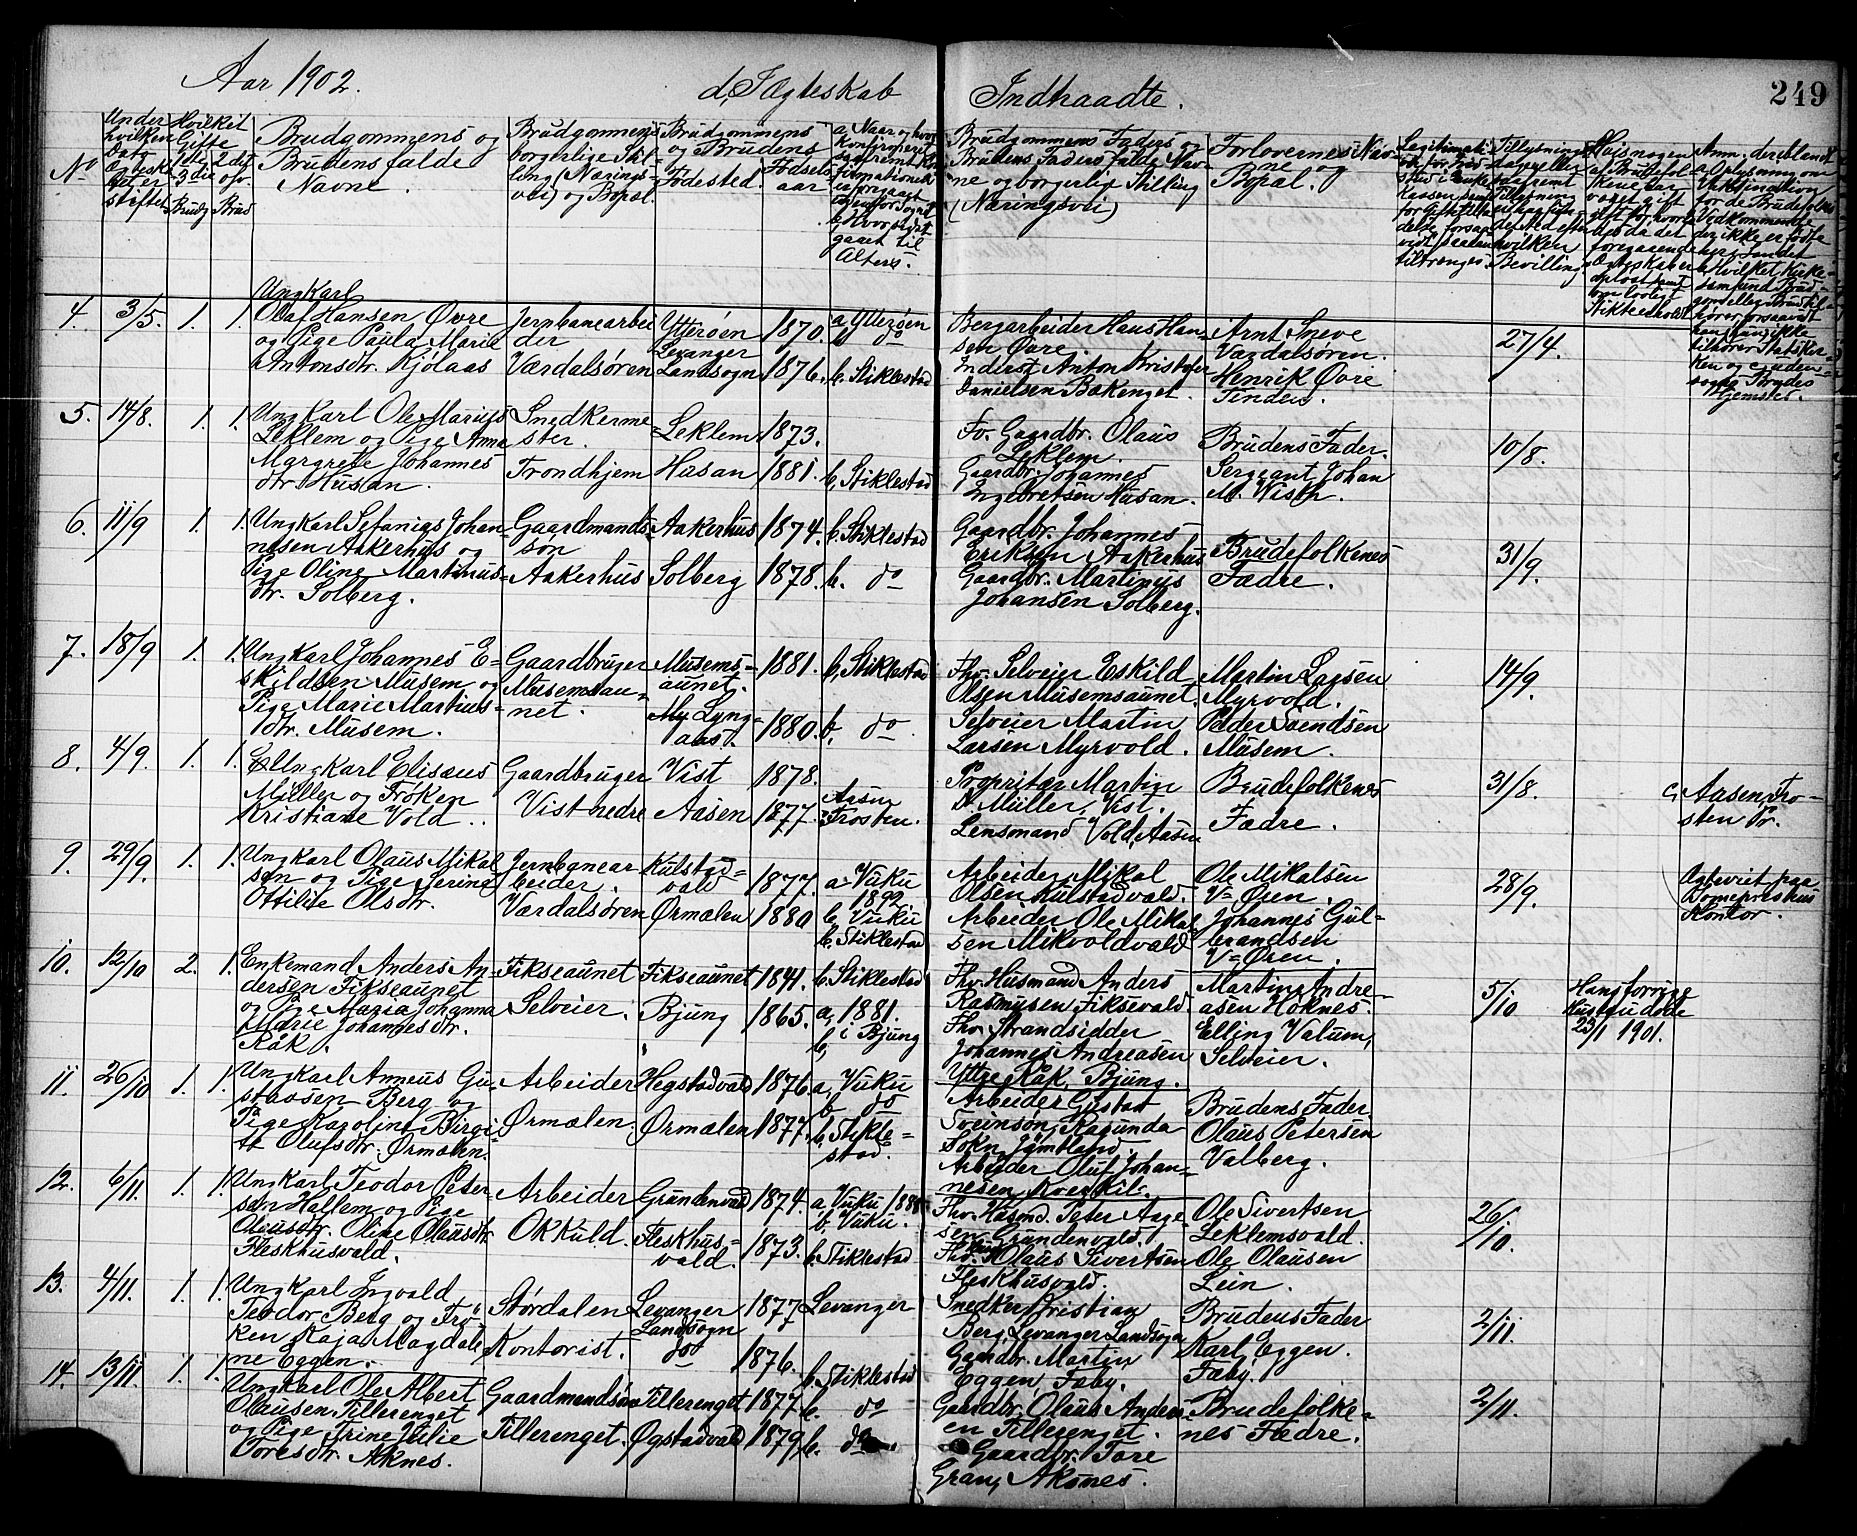 Aar 1902.
d, I Ægteskab
Indtraadte.
249
No
Under hvilken Dato Ægteskabet er stiftet
Hvilket Gifte 1ste 2det 3die o.s.v.
Brudg Brud
Brudgommens og Brudens fulde Navne.
Brudgommens borgerlige Stilling (Næringsvei) og Bopæl.
Brudgommens og Brudens
Fødested.
Fødselsaar
a, Naar og hvor
b, Hvor sidst gaaet til Alters.
Brudgommens Faders og Brudens Faders fulde Navne og borgerlig Stilling (Næringsvei)
Forlovernes Navne og Bopæl.
4.
3/5.
1.
1.
Ungkarl
Olaf Hansen Øvre
og Pige Paula Marie
Antonsdtr. Kjølaas
Jernbanearbei
der
Værdalsøren
Ytterøen
Levanger
Landsogn
1870.
1876.
a, Ytterøen
b, do
b. Stiklestad
Bergarbeider Haus Han=
sen Øvre.
Inderst Anton Kristofer
Danielsen Bakenget.
Arnt Sneve
Værdalsøren.
Henrik Øvre
Tinden.
27/4.
5.
14/8.
1.
1.
Ungkarl Ole Marius
Leklem og Pige Anna
Margrete Johannes
dtr. Husan.
Snedkerme=
ster.
Trondhjem
Leklem
Husan
1873.
1881.
b, Stiklestad
Fo. Gaardbr. Olaus
Leklem.
Gaardbr. Johannes
Ingebretsen Husan.
Brudens Fader.
Sergeant Johan
M. Wisth.
10/8.
6.
11/9
1.
1.
Ungkarl Sefanias Johan=
nesen Aakerhus og
Pige Oline Martinus=
dtr. Solberg.
Gaardmands=
søn
Aakerhus
Aakerhus
Solberg
1874.
1878.
b. Stiklestad
b. do
Gaardbr. Johannes
Eriksen Aakerhus
Gaardbr. Martinus
Johansen Solberg.
Brudefolkenes
Fædre.
31/9.
7.
18/9
1.
1.
Ungkarl Johannes E=
skildsen Musem og
Pige Marie Martius=
dtr. Musem.
Gaardbruger
Musemsau=
net.
Musems=
aunet.
My Lyng=
aas.
1881.
1880.
b, Stiklestad
b, do.
Fhv. Selveier Eskild
Olsen Musemsaunet.
Selveier Martin
Larsen Myrvold.
Martin Larsen
Myrvold.
Peder Svendsen
Musem.
14/9.
8.
4/9.
1.
1.
Ungkarl Elisæus
Müller og Frøken
Kristiane Vold.
Gaardbruger
Vist nedre
Vist
Aasen
1878.
1877.
Aasen
Frosten.
Proprietær Martin
D. Müller, Vist.
Lensmand Vold, Aasen
Brudefolkenes
Fædre.
31/8.
c, Aasen, Fro-
sten Pr.
9.
29/9.
1.
1.
Ungkarl Olaus Mikal
sen og Pige Serina
Ottilie Olsdtr.
Jernbanear
beider.
Værdalsøren
Kulstad=
vald
Ørmælen
1877.
1880
a. Vuku
1892
b, Vuku
b. Stiklestad
Arbeider Mikal
Olsen Kulstadvald.
Arbeider Ole Mikal
sen Mikvoldvald
Ole Mikalsen
V=Øren.
Johannes Gul=
brandsen
V=Øren.
28/9.
Domeprovstens
Kontor.
10.
12/10
2.
1.
Enkemand Anders An=
dersen Fikseaunet
og Pige Maria Johanna
Marie Johannesdtr.
Råk.
Fikseaunet
Selveier.
Fikseaunet
Bjung
1841.
1865.
b. Stiklestad
a, 1881.
b, i Bjung
Fhv. Husmand Anders
Rasmusen Fiksevald.
Fhv. Strandsidder
Johannes Andreasen
Yttre Råk, Bjung.
Martin Andre=
asen Høknes.
Elling Valum,
Selveier.
5/10
Hans forrige
Hustru døde
23/1 1901.
11.
26/10
1.
1.
Ungkarl Anneus Gu=
stavsen Berg og
Pige Karoline Birgi
te Olufsdtr. Ørmælen.
Arbeider
Ørmælen.
Hegstadvald
Ørmælen
1876.
1877.
a, Vuku
b do
b, Stikle=
stad.
Arbeider Gustav
Sveinson, Ragunda
Sokn, Jämtland.
Arbeider Oluf Johan=
nesen Kverkil.
Brudens Fader.
Olaus Petersen
Valberg.
12.
6/11.
1.
1.
Ungkarl Teodor Peter
sen Hallem og Pige
Olausdtr. Oline Olausdtr
Fleskhusvald.
Arbeider
Okkuld.
Grundenvald
Fleskhus=
vald.
1874.
1873.
a, Vuku
b. Vuku.
b. Stiklestad
Fhv. Husmd. Peter Aage
sen Grundenvald.
Olaus Sivertsen
Fleskhusvald.
Ole Sivertsen
Leklemsvald.
Ole Olausen
Lein.
26/10.
13.
4/11.
1.
1.
Ungkarl Ingvald
Teodor Berg og Frö
ken Kaja Magdale
ne Eggen.
Størdalen
Kontorist.
Levanger
Landsogn
do
1877
1876.
Levanger
b. Stiklestad
Snedker Kristian
Berg, Levanger Landsogn
Gaardbr. Martin
Eggen Faby.
Brudens Fader
Karl Eggen.
Faby.
2/11.
14.
13/11.
1.
1.
Ungkarl Ole Albert
Olausen Tillerenget
og Pige Trine Julie
Toresdtr. Aknes.
Gaardmandsøn
Tillerenget.
Tillerenget
Øgstadvald
1877.
1879.
b. do
b. do
Gaardbr. Olaus Anders=
en Tillerenget.
Gaardbr. Tore
Gran, Aksnes.
Brudefolke=
nes Fædre.
2/11.